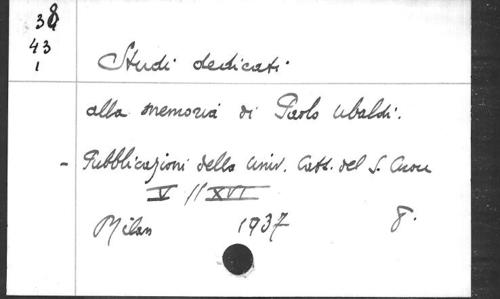 38
43
1
Studi dedicati
alla memoria di Paolo Ubaldi.
- Pubblicazioni della Univ. Catt. del S. Cuore
V // XVI
Milan 1937 8.